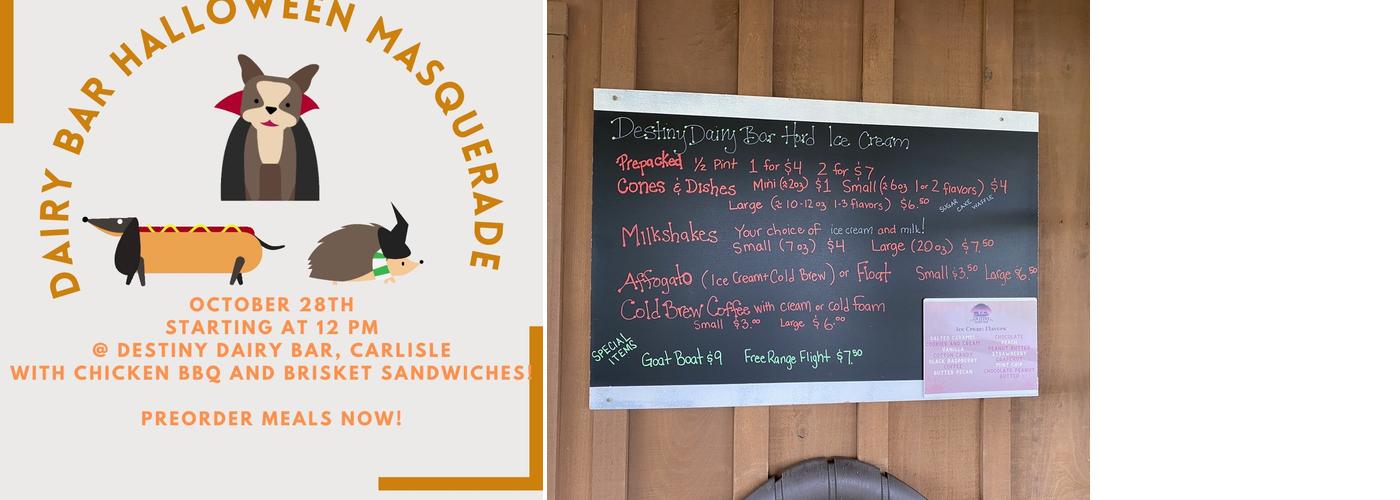 DAIRY BAR HALLOWEEN MASQUERADE
OCTOBER 28TH
STARTING AT 12 PM
@ DESTINY DAIRY BAR, CARLISLE
WITH CHICKEN BBQ AND BRISKET SANDWICHES!
PREORDER MEALS NOW!
Destiny Dairy Bar Hard Ice Cream
Prepacked ½ Pint 1 for $4 2 for $7
Cones & Dishes Mini (≈2oz) $1 Small (≈6oz 1 or 2 flavors) $4
Large (≈10-12oz 1-3 flavors) $6.50
SUGAR CAKE WAFFLE
Milkshakes Your choice of ice cream and milk!
Small (7oz) $4 Large (20oz) $7.50
Affogato (Ice Cream+Cold Brew) or Float Small $3.50 Large $6.50
Cold Brew Coffee with cream or cold foam
Small $3.00 Large $6.00
SPECIAL
ITEMS
Goat Boat $9 Free Range Flight $7.50
Ice Cream Flavors
SALTED CARAMEL
COOKIES AND CREAM
VANILLA
COTTON CANDY
BLACK RASPBERRY
COFFEE
BUTTER PECAN
CHOCOLATE
PEACH
PEANUT BUTTER
STRAWBERRY
MINT CHIP
CHOCOLATE PEANUT
BUTTER